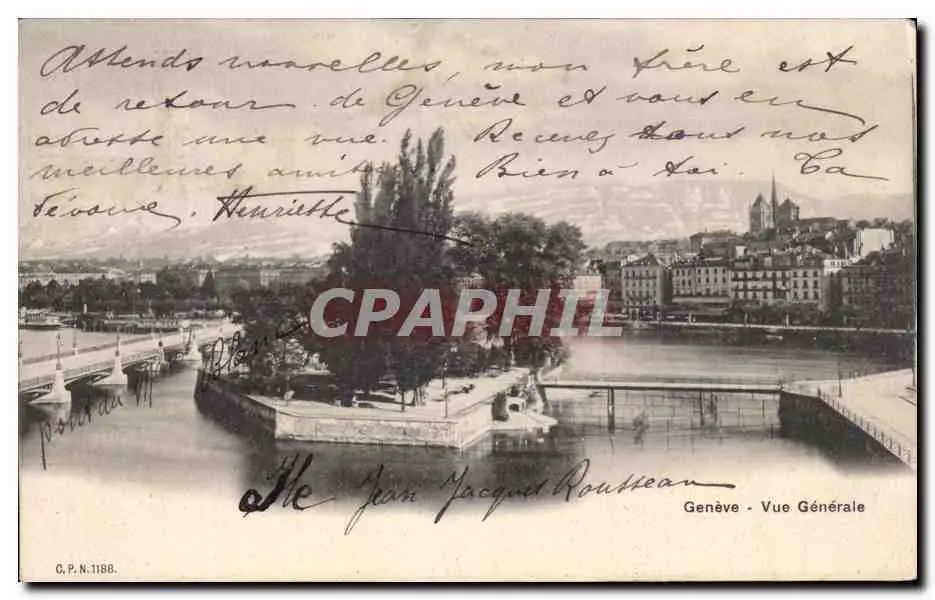 Attends nouvelles, mon frère est
de retour de Genève et vous en
adresse une vue. Recevez tous nos
meilleures amitiés Bien à toi. Ta
dévouée, Henriette
CPARAMA.COM
pont du Mt Blanc
Ile Jean Jacques Rousseau
Genève - Vue Générale
C. P. N. 1188.